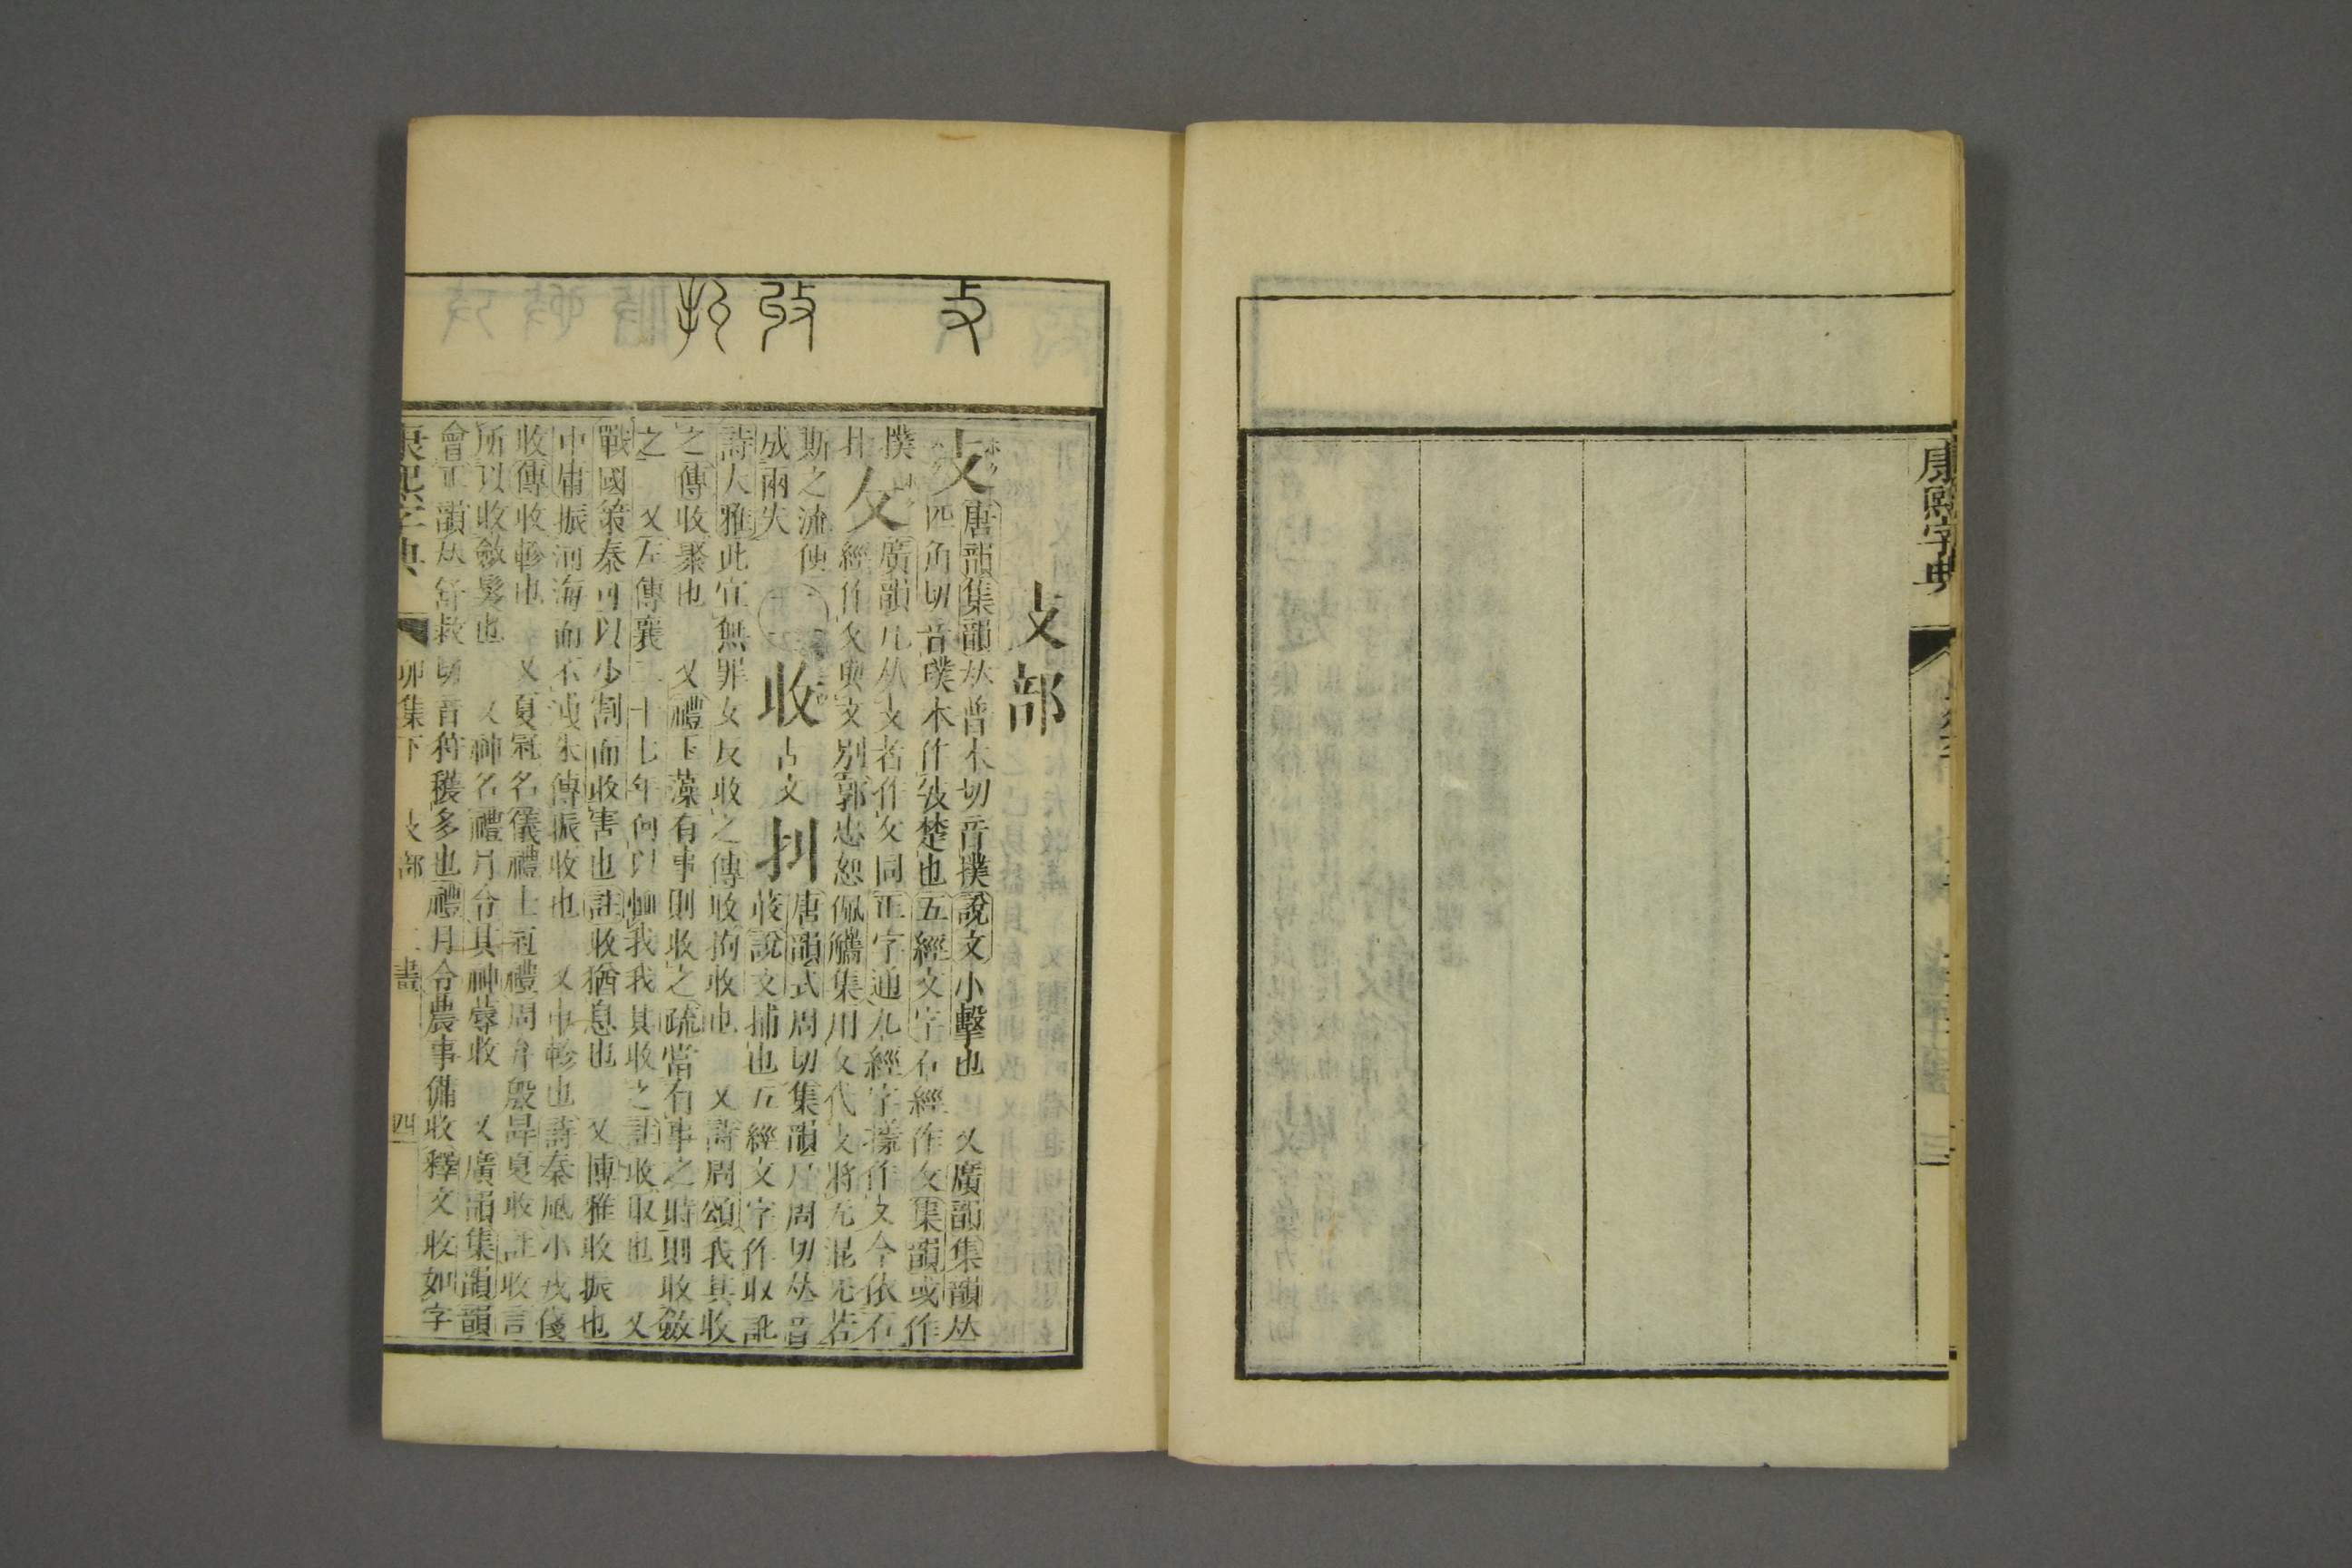 康熙字典
三
攴部
攴
唐韻集韻𠀤普木切音撲說文小擊也　又廣韻集韻𠀤
匹角切音璞木作攱楚也五經文字石經作攵集韻或作
撲
攵
廣韻凡从攴者作攵同正字通九經字㨾作攴今依石
經作攵與文別郭忠恕佩觿集用攵代攴將无混旡若
斯之流便
成兩失
二
收
古文
㧃
唐韻式周切集韻尸周切𠀤音
荍說文捕也五經文字作収訛
詩大雅此宜無罪女反收之傳收拘收也　又詩周頌我其收
之傳收聚也　又禮玉藻有事則收之疏當有事之時則收斂
之　又左傳襄二十七年何以恤我我其收之註收取也　又
戰國策秦可以少割而收害也註收猶息也　又博雅收振也
中庸振河海而不洩朱傳振收也　又車軫也詩秦風小戎俴
收傳收軫也　又夏冠名儀禮士冠禮周弁殷冔夏收註收言
所以收斂髮也　又神名禮月令其神蓐收　又廣韻集韻韻
會正韻𠀤舒救切音狩穫多也禮月令農事備收釋文收如字
康熙字典
卯集下
攴部
二畫
四